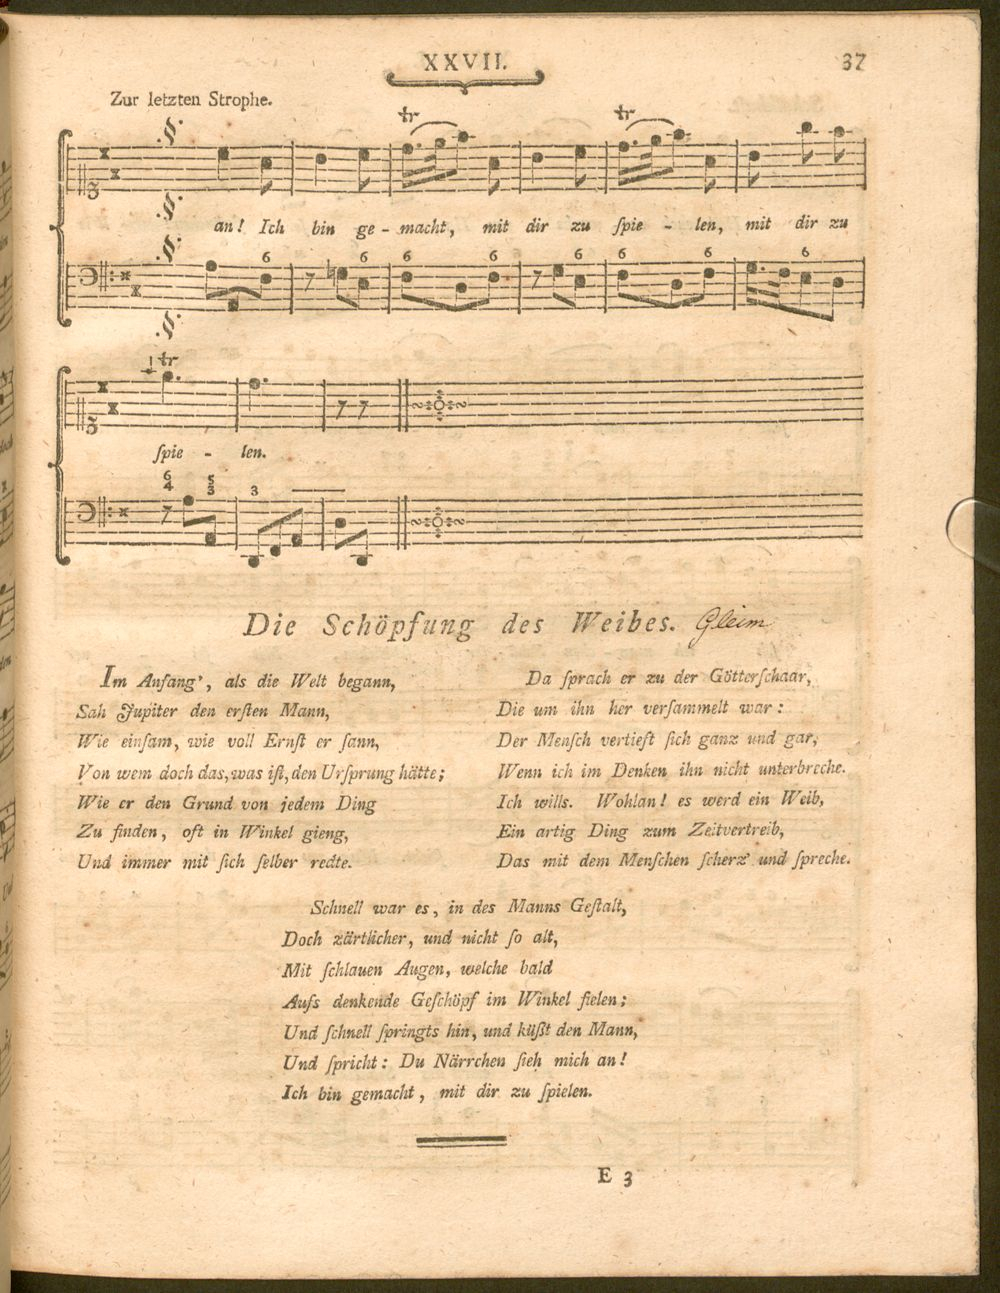 XXVII.
37
Zur letzten Strophe.
tr tr
an! Ich bin ge - macht, mit dir zu ſpie - len, mit dir zu
6 6 6 6 6 6 6 6 6
tr
ſpie - len.
6 5
4 3 3
Die Schöpfung des Weibes. Gleim
Im Anfang', als die Welt begann,
Sah Jupiter den erſten Mann,
Wie einſam, wie voll Ernſt er ſann,
Von wem doch das, was iſt, den Urſprung hätte;
Wie er den Grund von jedem Ding
Zu finden, oft in Winkel gieng,
Und immer mit ſich ſelber redte.
Da ſprach er zu der Götterſchaar,
Die um ihn her verſammelt war:
Der Menſch vertieft ſich ganz und gar,
Wenn ich im Denken ihn nicht unterbreche.
Ich wills. Wohlan! es werd ein Weib,
Ein artig Ding zum Zeitvertreib,
Das mit dem Menſchen ſcherz' und ſpreche.
Schnell war es, in des Manns Geſtalt,
Doch zärtlicher, und nicht ſo alt,
Mit ſchlauen Augen, welche bald
Aufs denkende Geſchöpf im Winkel fielen;
Und ſchnell ſpringts hin, und küßt den Mann,
Und ſpricht: Du Närrchen ſieh mich an!
Ich bin gemacht, mit dir zu ſpielen.
E 3